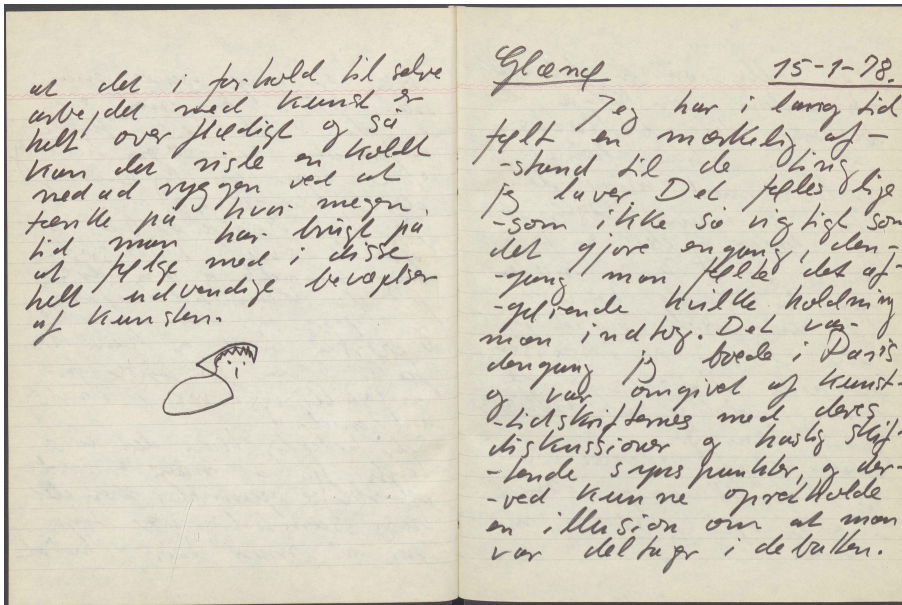 at det i forhold til selve
arbejdet med kunst er
helt overflødigt og så
kan det risle en koldt
nedad ryggen ved at
tænke på hvor megen
tid man har brugt på
at følge med i disse
helt udvendige bevægelser
af kunsten.
Glænø 15-1-78.
Jeg har i lang tid
følt en mærkelig af-
-stand til de ting
jg laver. Det føles lige
-som ikke så vigtigt som
det gjore engang, den-
-gang man følte det af-
-gørende hvilke holdning
man indtog. Det var
dengang jg boede i Paris
og var omgivet af kunst-
-tidskrifternes med deres
diskussioner og hastig skif-
-tende synspunkter, og der-
-ved kunne opretholde
en illusion om at man
var deltager i debatten.